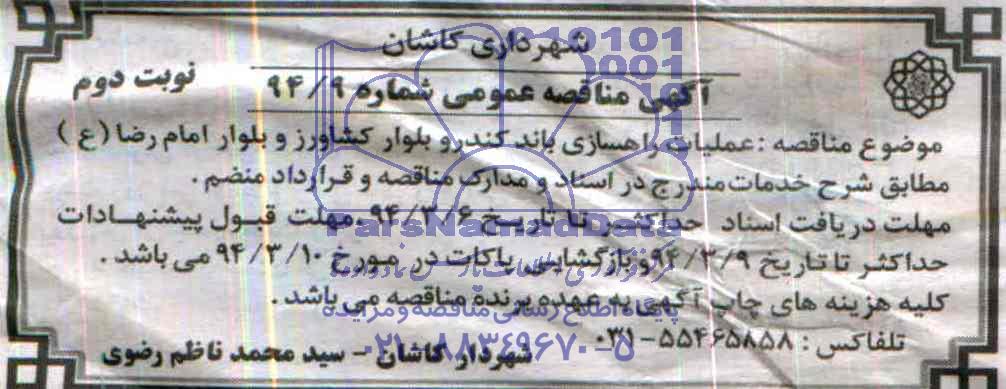 شهرداری کاشان
آگهی مناقصه عمومی شماره ۹۴/۹
نوبت دوم
موضوع مناقصه : عملیات راهسازی باند کندرو بلوار کشاورز و بلوار امام رضا (ع)
مطابق شرح خدمات مندرج در اسناد و مدارک مناقصه و قرارداد منضم .
مهلت دریافت اسناد حداکثر تا تاریخ ۹۴/۳/۶ ، مهلت قبول پیشنهادات
حداکثر تا تاریخ ۹۴/۳/۹ و بازگشایی پاکات در مورخ ۹۴/۳/۱۰ می باشد .
کلیه هزینه های چاپ آگهی به عهده برنده مناقصه می باشد .
تلفاکس : ۵۵۴۶۵۸۵۸-۰۳۱
شهردار کاشان - سید محمد ناظم رضوی
ParsNamadData
پایگاه اطلاع رسانی مناقصه و مزایده
۰۲۱-۸۸۳۴۹۶۷۰-۵